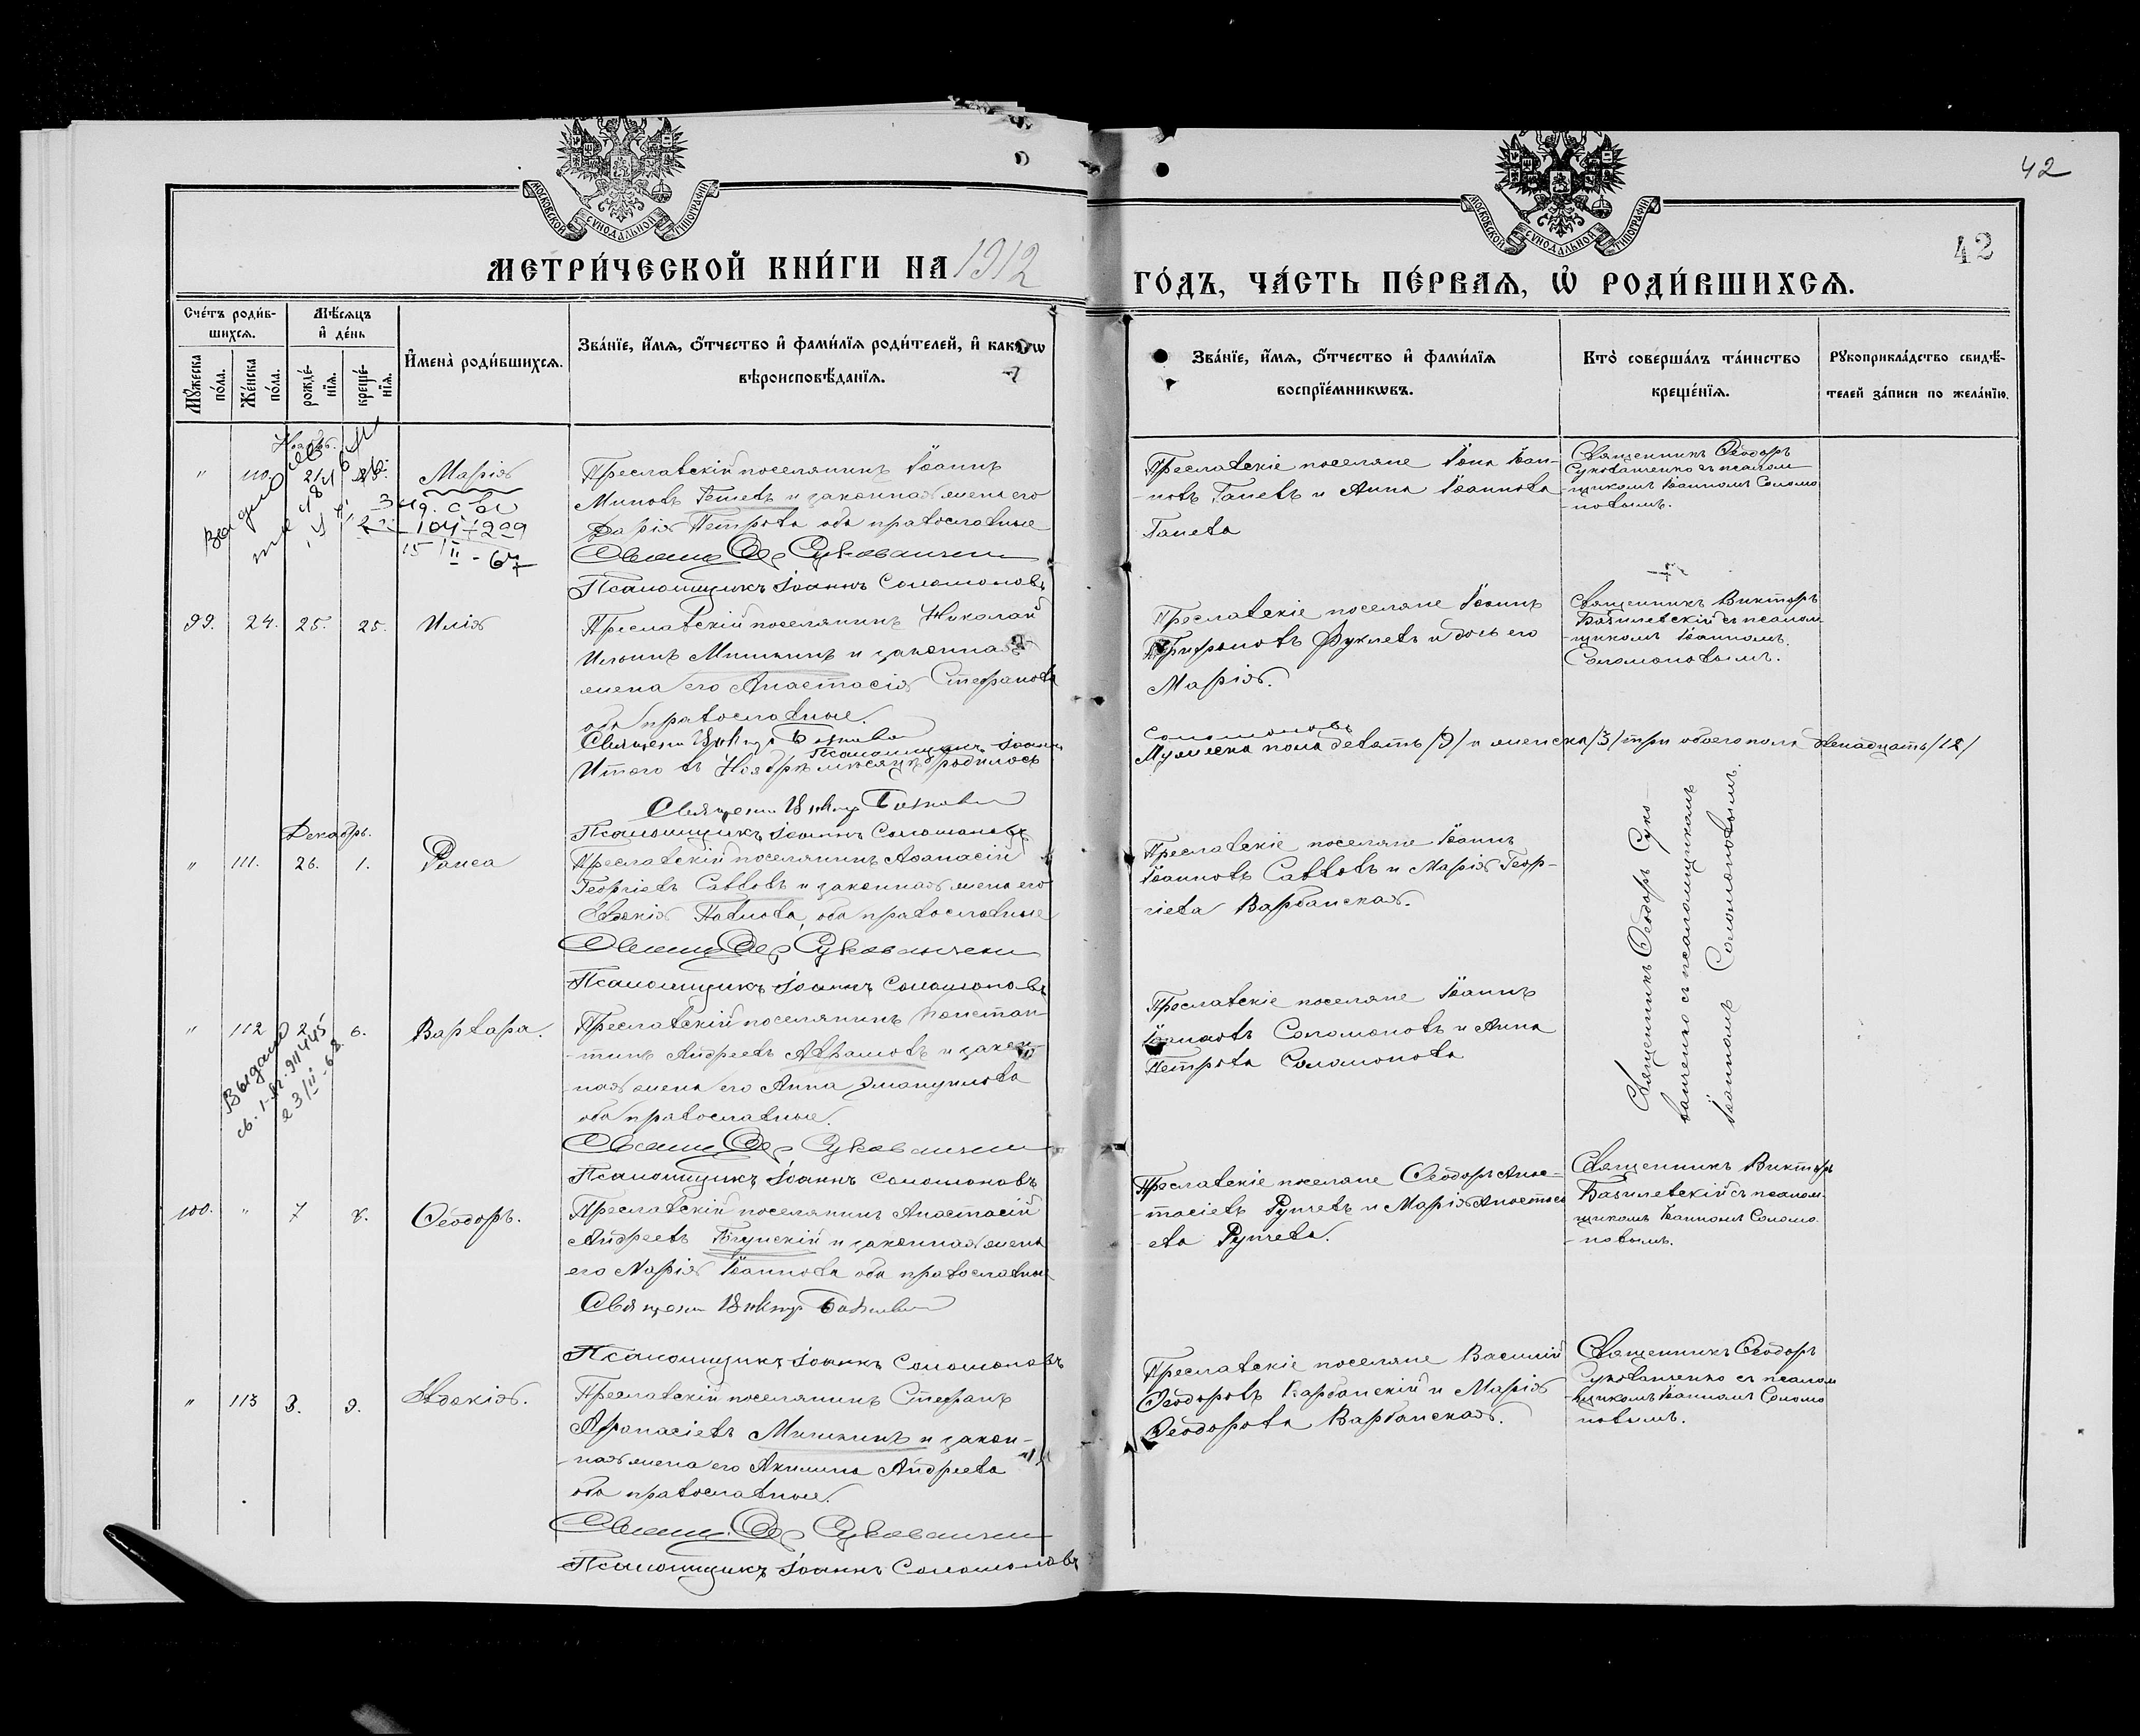 42
МОСКОВСКОЙ СУНОДАЛЬНОЙ ТИПОГРАФІИ
МОСКОВСКОЙ СУНОДАЛЬНОЙ ТИПОГРАФІИ
42
МЕТРИ́ЧЕСКОЙ КНИ́ГИ НА 1912
ГО́ДЪ, ЧА́СТЬ ПЕ́РВАѦ, Ѡ҆ РОДИ́ВШИХСѦ.
Сче́тъ роди́в-
шихсѧ.
Мꙋ́жеска по́ла.
Же́нска по́ла.
Мѣ́сѧцъ
и҆ де́нь
рожде́-
нїѧ.
креще́-
нїѧ.
И҆мена̀ роди́вшихсѧ.
Зва́нїе, и҆́мѧ, ѻ҆́тчество и҆ фами́лїѧ роди́телей, и҆ како́гѡ
вѣроисповѣ́данїѧ.
Зва́нїе, и҆́мѧ, ѻ҆́тчество и҆ фами́лїѧ
воспрїе́мникѡвъ.
Кто̀ соверша́лъ та́инство
креще́нїѧ.
Рꙋкоприкла́дство свидѣ́-
телей за́писи по жела́нїю.
Ноябрь.
" 110. 21. Марія
15/II-67
Преславскій поселянинъ Іоаннъ
Миновъ Гешевъ и законная жена его
Дарія Петрова оба православные
Священ. Ѳеод. Суковаченко
Псаломщикъ Іоаннъ Соломоновъ
Преславскіе поселяне Іона Іоан-
новъ Ганевъ и Анна Іоаннова
Ганева
Священникъ Ѳеодоръ
Суковаченко съ псалом-
щикомъ Іоанномъ Соломо
-новымъ.
99. 24. 25. 25. Илія
Преславскій поселянинъ Николай
Ильинъ Мишкинъ и законная
жена его Анастасія Стефанова
оба православные.
Псаломщикъ Іоаннъ
Соломоновъ
Преславскіе поселяне Іоаннъ
Трифоновъ Фуклевъ и дочь его
Марія.
Священникъ Викторъ
Базилевскій съ псалом-
-щикомъ Іоанномъ
Соломоновымъ.
Итого въ Ноябрѣ мѣсяцѣ родилось
Мужеска пола девять /9/ и женска /3/ три обоего пола двенадцать /12/
Псаломщикъ Іоаннъ Соломоновъ
Декабрь.
" 111. 26. 1. Раиса
Преславскій поселянинъ Аѳанасій
Георгіевъ Савовъ и законная жена его
Евдокія Павлова, оба православные
Священ. Ѳеод. Суковаченко
Псаломщикъ Іоаннъ Соломоновъ
Преславскіе поселяне Іоаннъ
Іоанновъ Савовъ и Марія Геор-
-гіева Варбанская.
Священникъ Ѳеодоръ Суко-
ваченко съ псаломщикомъ
Іоанномъ Соломоновымъ.
" 112 2. 6. Варвара.
Выдано
св. 1-АГ. 911445
23/II-68.
Преславскій поселянинъ Констан-
-тинъ Андреевъ Аврамовъ и закон-
-ная жена его Анна Эмануилова
оба православные.
Священ. Ѳеод. Суковаченко
Псаломщикъ Іоаннъ Соломоновъ
Преславскіе поселяне Іоаннъ
Іоанновъ Соломоновъ и Анна
Петрова Соломонова
100. " 7 8. Ѳеодоръ.
Преславскій поселянинъ Анастасій
Андреевъ и законная жена
его Марія Іоаннова оба православные
Псаломщикъ Іоаннъ Соломоновъ
Преславскіе поселяне Ѳеодоръ Анас-
-тасіевъ Рупчевъ и Марія Анастасі
-ева Рупчева.
Священникъ Викторъ
Базилевскій съ псалом-
щикомъ Іоанномъ Соломо
-новымъ.
" 113 8. 9. Евдокія.
Преславскій поселянинъ Стефанъ
Аѳанасіевъ Мишкинъ и закон-
-ная жена его Акилина Андреева
оба православные.
Священ. Ѳеод. Суковаченко
Псаломщикъ Іоаннъ Соломоновъ
Преславскіе поселяне Василій
Ѳеодоровъ Варбанскій и Марія
Ѳеодорова Варбанская.
Священникъ Ѳеодоръ
Суковаченко съ псалом
щикомъ Іоанномъ Соломо
новымъ.